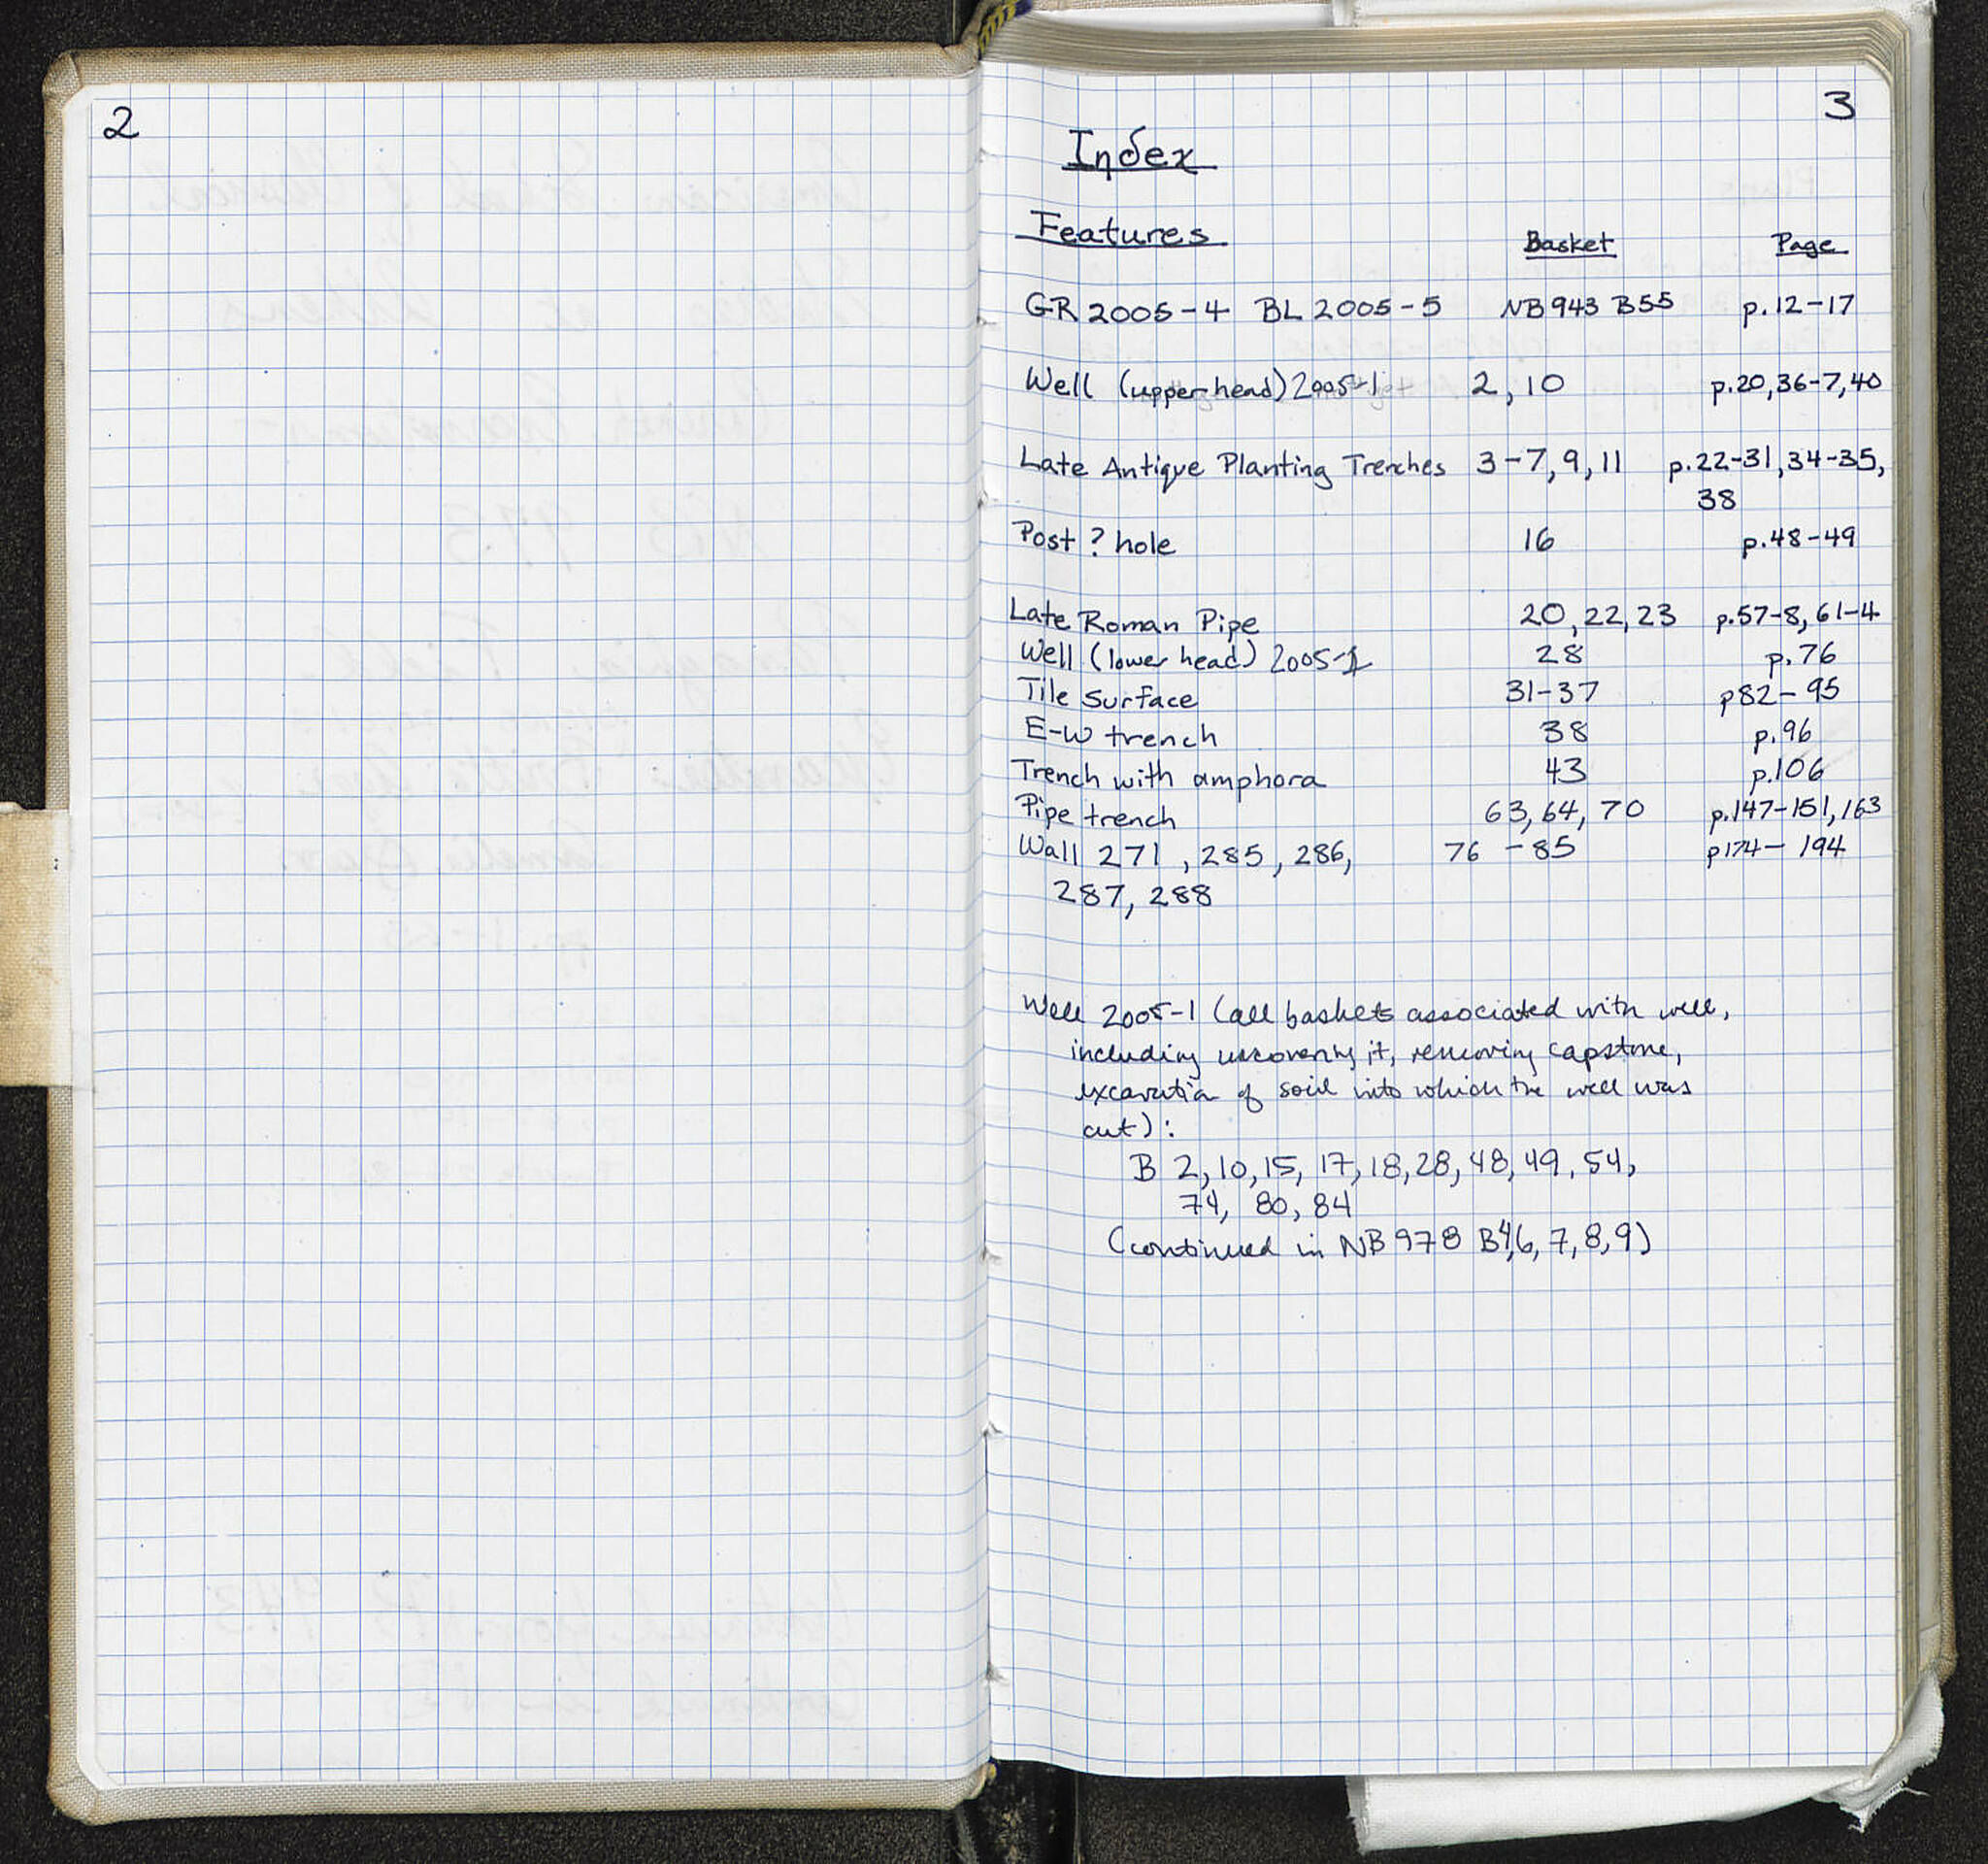 2
3
Index
Features Basket Page
GR 2005-4 BL 2005-5 NB 943 B55 p. 12-17
Well (upper head) 2005-1 2, 10 p. 20, 36-7, 40
Late Antique Planting Trenches 3-7, 9, 11 p. 22-31, 34-35,
38
Post ? hole 16 p. 48-49
Late Roman Pipe 20, 22, 23 p. 57-8, 61-4
Well (lower head) 2005-1 28 p. 76
Tile Surface 31-37 p82-95
E-W trench 38 p. 96
Trench with amphora 43 p. 106
Pipe trench 63, 64, 70 p. 147-151, 163
Wall 271, 285, 286, 76-85 p174-194
287, 288
Well 2005-1 (all baskets associated with well,
including uncovering it, removing capstone,
excavation of soil into which the well was
cut):
B 2, 10, 15, 17, 18, 28, 48, 49, 54,
74, 80, 84
(continued in NB 978 B4, 6, 7, 8, 9)